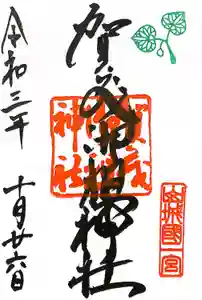 賀茂御祖神社
賀茂
御祖
神社
山城國一宮
令和三年
十月廿六日